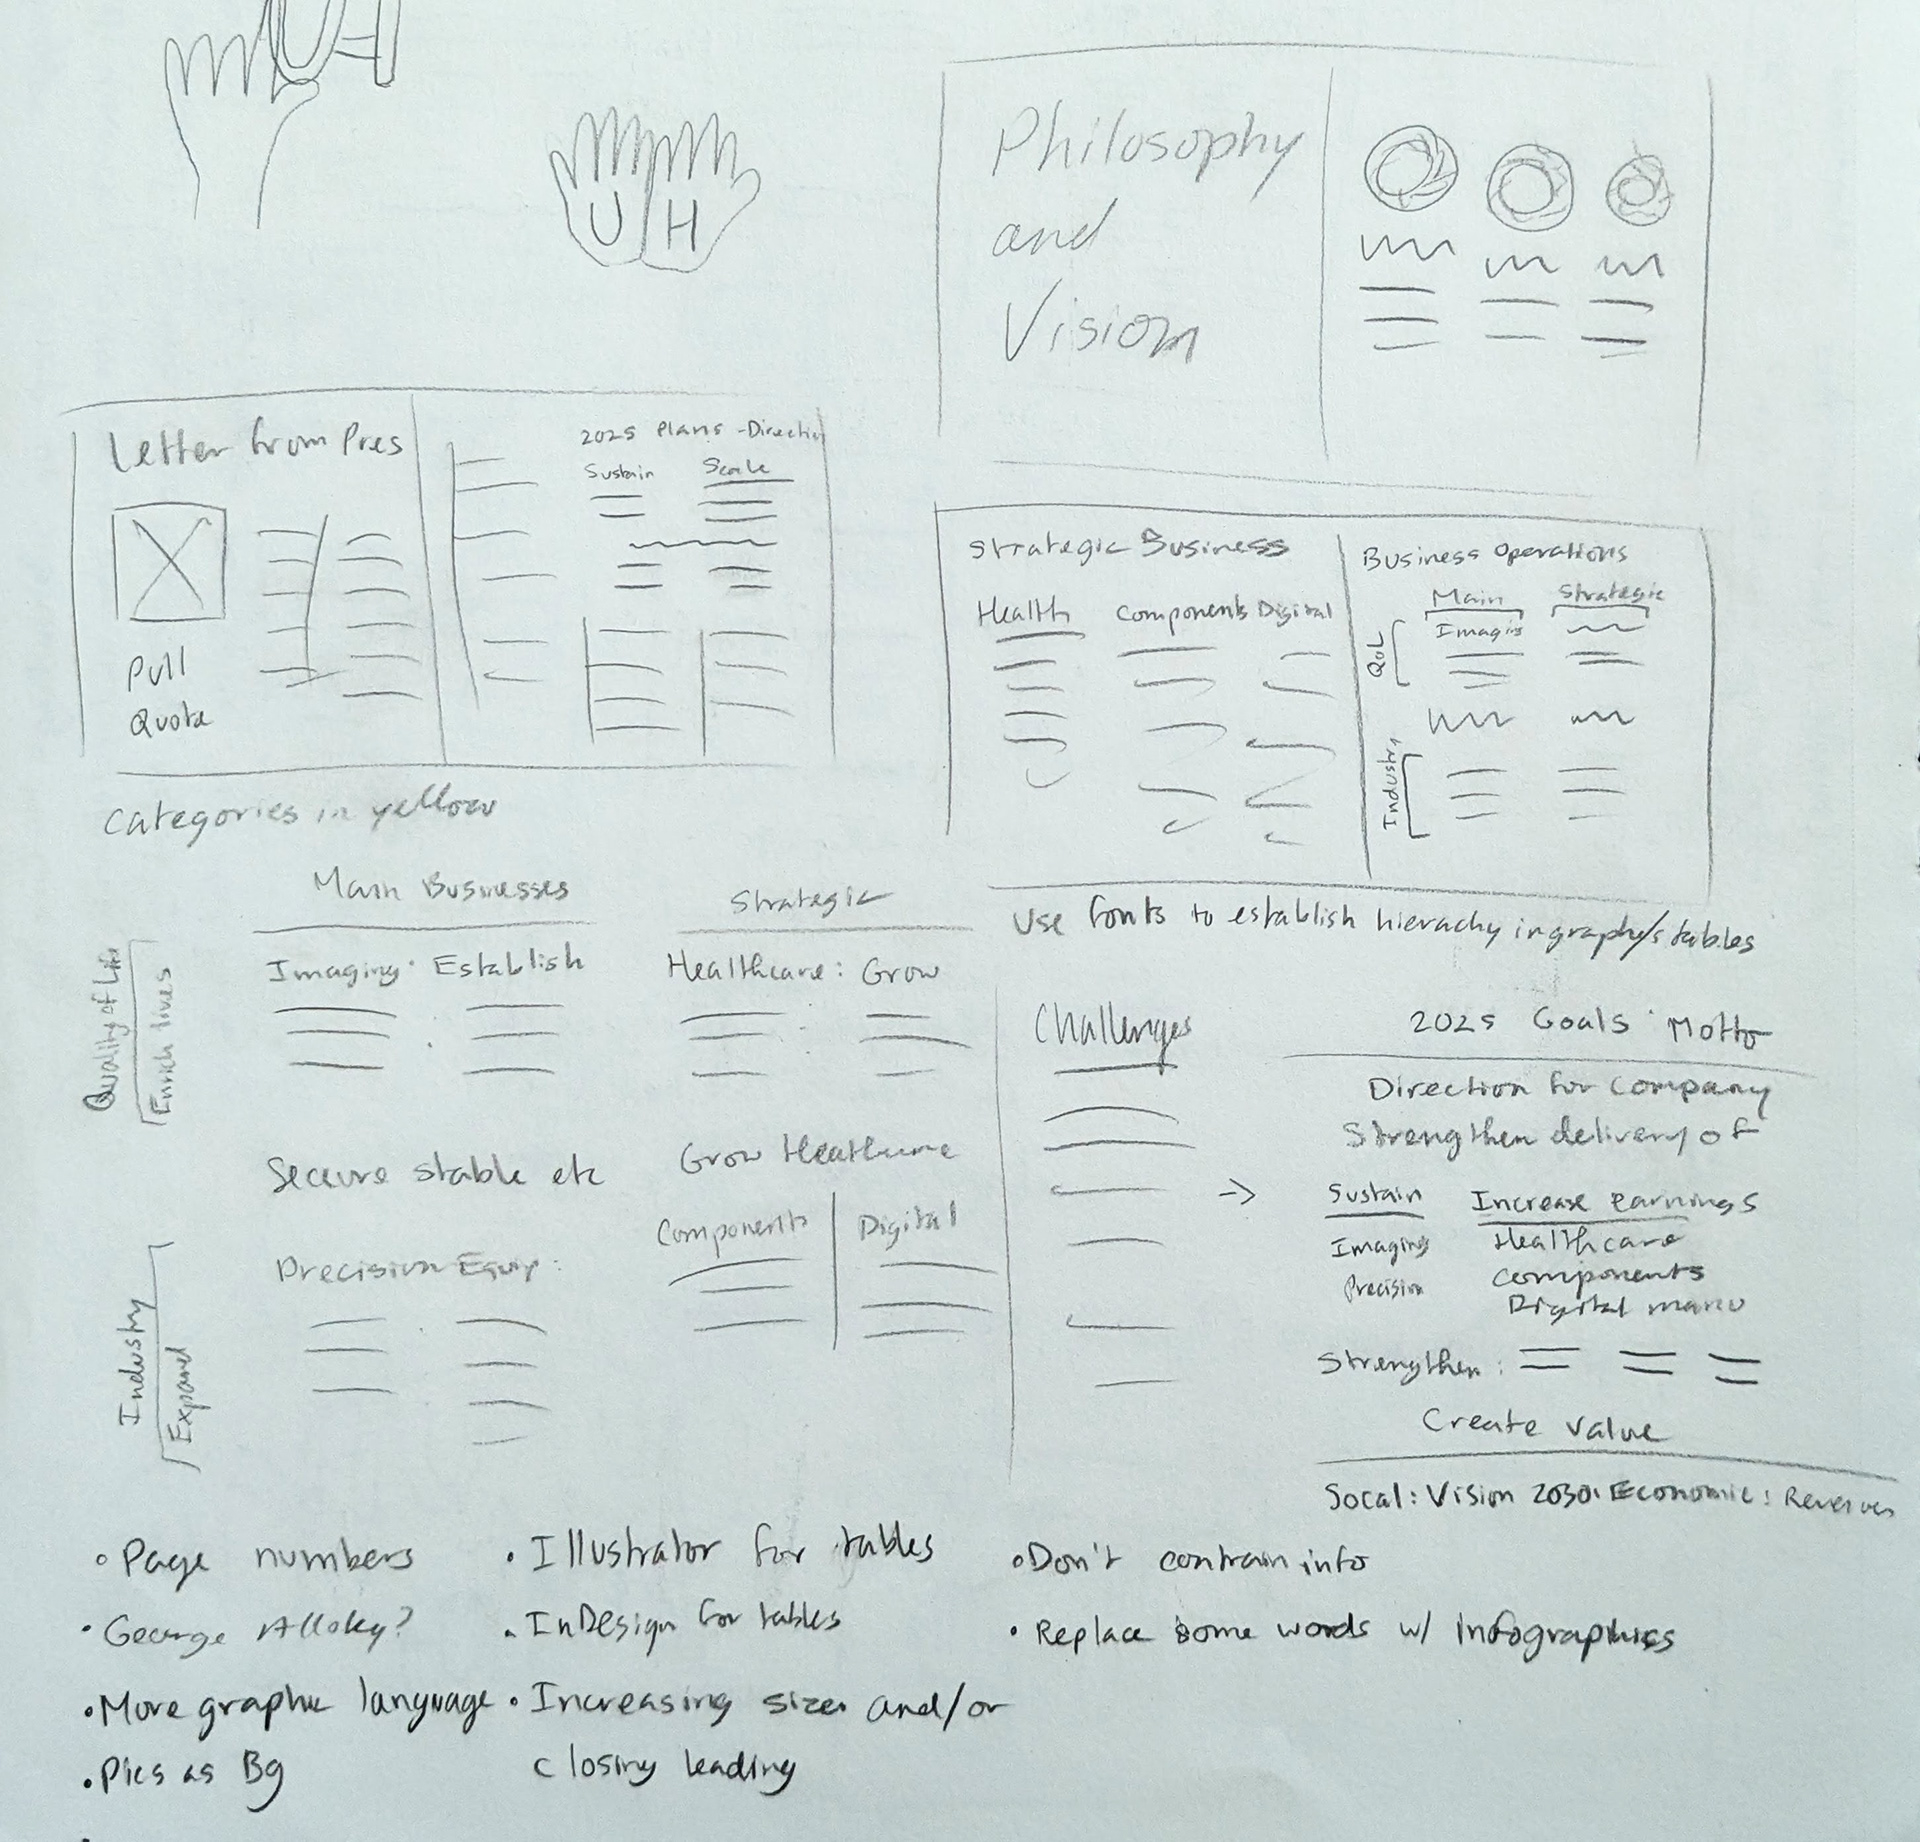 UH
U H
Philosophy
and
Vision
Letter from Pres
Pull
Quote
2025 Plans - Direction
Sustain Scale
Categories in yellow
Strategic Business
Health Components Digital
Business Operations
Main Strategic
QoL
Imagin
Industry
Use fonts to establish hierachy in graphs/tables
Main Businesses Strategic
Quality of Life
Enrich lives
Imaging: Establish Healthcare: Grow
Secure stable etc Grow Heathcare
Components Digital
Precision Equip:
Industry
Expand
Challenges
2025 Goals: Motto
Direction for company
Strengthen delivery of
-> Sustain Increase earnings
Imaging Healthcare
Precision Components
Digital manu
Strengthen:
Create value
Socal: Vision 2030: Economic: Revenues
• Page numbers
• George
• More graphic language
• Pics as Bg
• Illustrator for tables
• InDesign for tables
• Increasing size and/or
closing leading
• Don't contrain info
• Replace some words w/ infographics